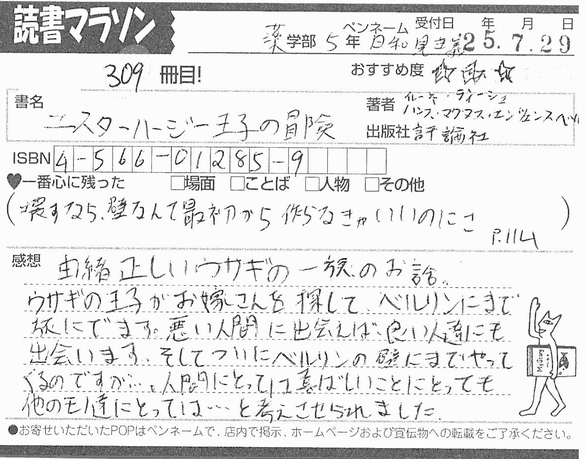 読書マラソン
ペンネーム 受付日 年 月 日
薬学部 5年 日和見主義 25.7.29
309 冊目!
おすすめ度 ☆☆☆
書名
エスターハージー王子の冒険
著者 イレーネ・ディーシェ
ハンス・マグヌス・エンツェンスベルガー
出版社 評論社
ISBN 4-566-01285-9
♥一番心に残った □場面 □ことば □人物 □その他
(壊すなら、壁なんて最初から作らなきゃいいのにさ)
P.114
感想 由緒正しいウサギの一族のお話。
ウサギの王子がお嫁さんを探して、ベルリンにまで
旅にでます。悪い人間に出会えば、良い人達にも
出会います。そしてついにベルリンの壁にまでやって
くるのですが…。人間にとっては喜ばしいことにとっても
他のモノ達にとっては…と考えさせられました。
●お寄せいただいたPOPはペンネームで、店内で掲示、ホームページおよび宣伝物への転載をご了承ください。